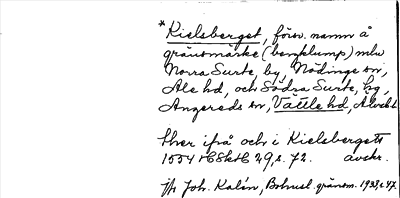 *Kielsberget, försv. namn å
gränsmärke (bergklump) mlm
Norra Surte, by, Nödinge sn,
Ale hd, och Södra Surte, by,
Angereds sn, Vättle hd, Älvsb l.
ther ifrå och i Kielsbergett
1554 HSkH 29, s. 72. avskr.
Joh. Kalén, Bohusl. gränsm. 1938, s. 47.